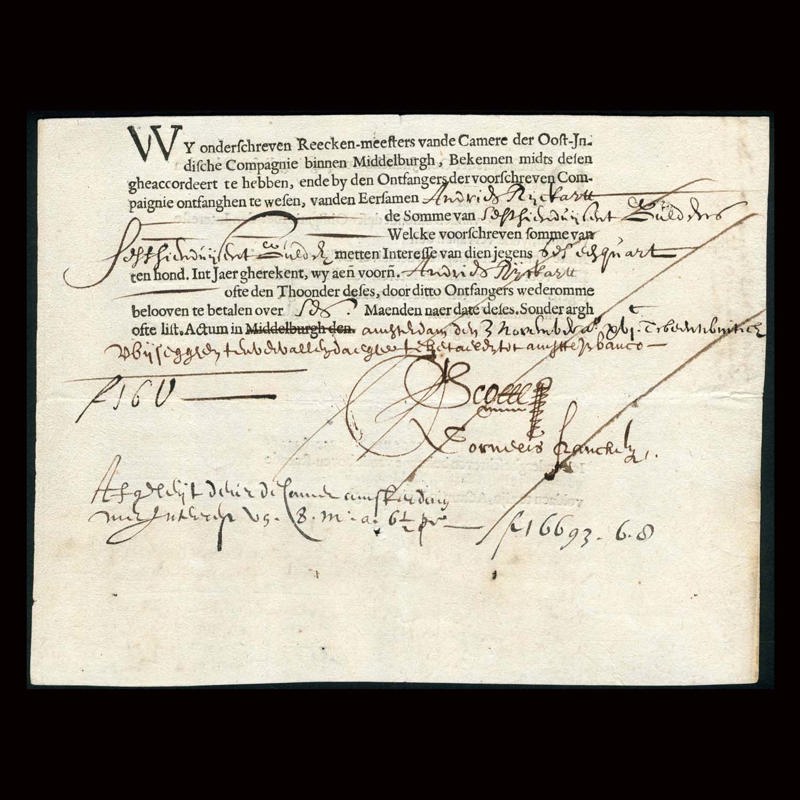 WY onderschreven Reecken-meesters vande Camere der Oost-Jn-
dische Compagnie binnen Middelburgh, Bekennen midts desen
gheaccordeert te hebben, ende by den Ontfangers der voorschreven Com-
paignie ontfanghen te wesen, vanden Eersamen Andries Rijckartt
de Somme van sesthienduijsent Guldens
Welcke voorschreven somme van
sesthienduijsent Gulden metten Interesse van dien jegens ses een quart
ten hond. Int Jaer gherekent, wy aen voorn. Andries Rijckartt
ofte den Thoonder deses, door ditto Ontfangers wederomme
belooven te betalen over ses Maenden naer date deses. Sonder argh
ofte list. Actum in Middelburgh den. amsterdam den 3 November
banco
Scotte
Cornelis Franck
Camer amsterdam
8. m. a. 6¼ f 16693. 6. 8